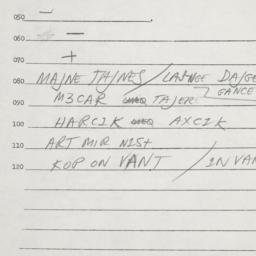 050 —
060 —
070 +
080 MAJNE TAJNES / LAJNGE DAJGE
090 M3CAR TAJER GANCE
100 HARCIK AXCIK
110 ART MIR NIST
120 KOP ON VANT / IN VAN